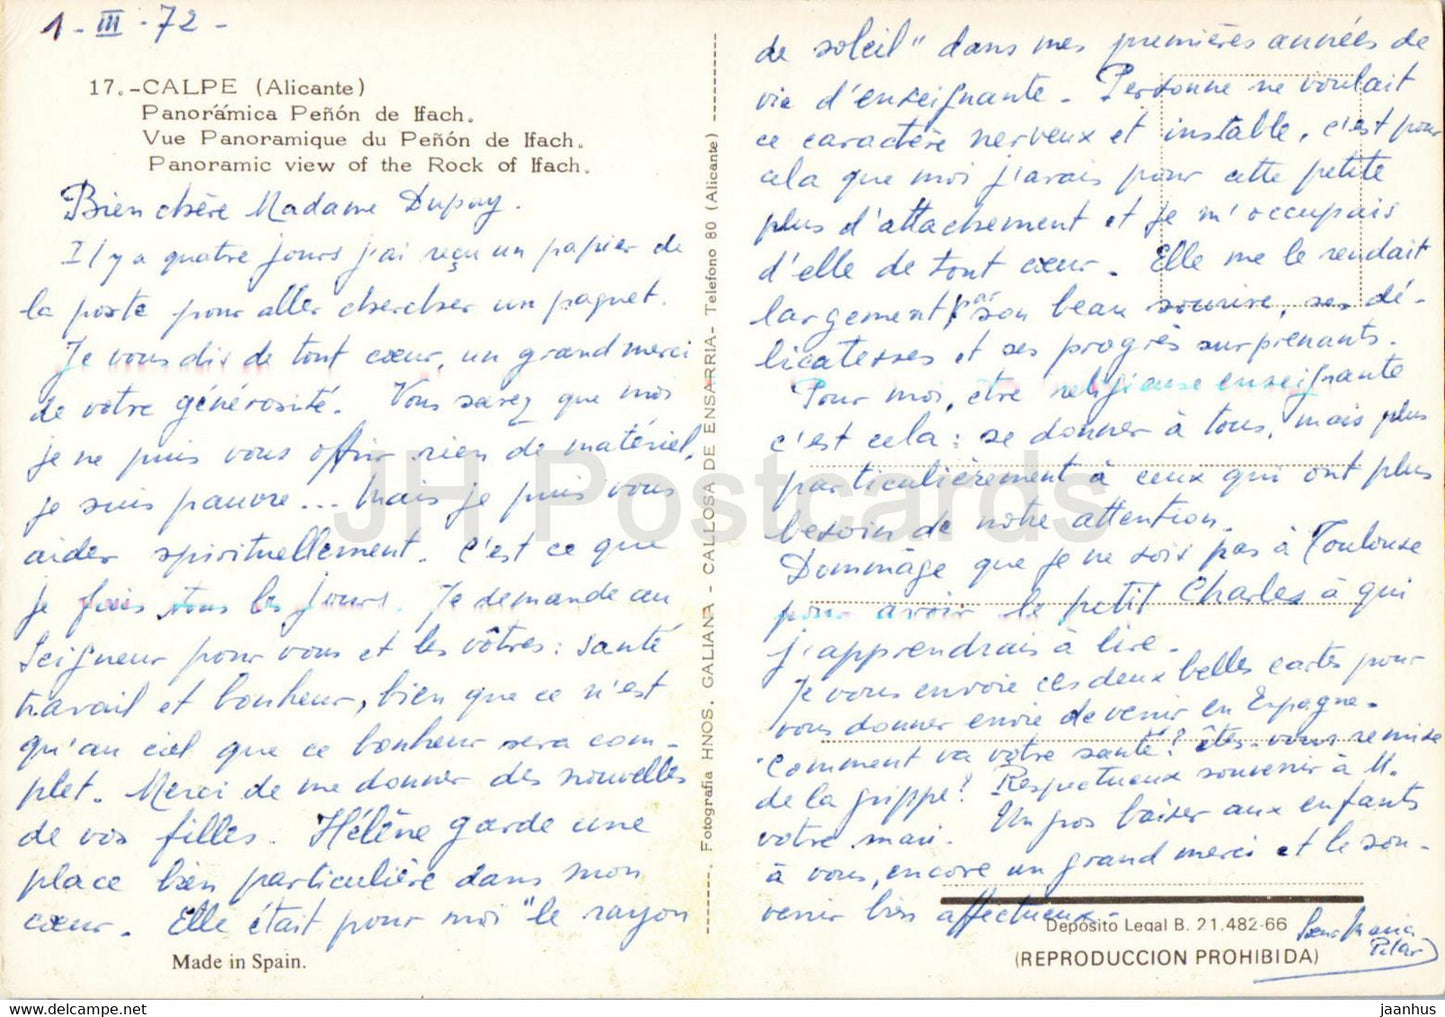 1 - III - 72 -
17.-CALPE (Alicante)
Panorámica Peñón de Ifach.
Vue Panoramique du Peñón de Ifach.
Panoramic view of the Rock of Ifach.
Bien chère Madame Dupuy.
Il y a quatre jours j'ai reçu un papier de
la poste pour aller chercher un paquet.
Je vous dis de tout cœur, un grand merci
de votre générosité. Vous savez que moi
je ne puis vous offrir rien de matériel,
je suis pauvre... Mais je puis vous
aider spirituellement. C'est ce que
je fais tous les jours. Je demande au
Seigneur pour vous et les vôtres: santé
travail et bonheur, bien que ce n'est
qu'au ciel que ce bonheur sera com-
plet. Merci de me donner des nouvelles
de vos filles. Hélène garde une
place bien particulière dans mon
cœur. Elle était pour moi "le rayon
Made in Spain.
Fotografia HNOS. GALIANA - CALLOSA DE ENSARRIA - Telefono 80 (Alicante)
de soleil" dans mes premières années de
vie d'enseignante. Personne ne voulait
ce caractère nerveux et instable, c'est pour
cela que moi j'avais pour cette petite
plus d'attachement et je m'occupais
d'elle de tout cœur. Elle me le rendait
largement par son beau sourire, ses dé-
licatesses et ses progrès surprenants.
Pour moi, être religieuse enseignante
c'est cela: se donner à tous, mais plus
particulièrement à ceux qui ont plus
besoin de notre attention.
Dommage que je ne sois pas à Toulouse
pour avoir le petit Charles à qui
j'apprendrais à lire.
Je vous envoie ces deux belles cartes pour
vous donner envie de venir en Espagne.
Comment va votre santé? êtes-vous remise
de la grippe? Respectueux souvenir à M.
votre mari. Un gros baiser aux enfants
à vous, encore un grand merci et le sou-
venir bien affectueux.
Soeur Maria
Pilar
Depósito Legal B. 21.482-66
(REPRODUCCION PROHIBIDA)
JH Postcards
www.hippostcard.com/store/jhpostcards
jaanhus